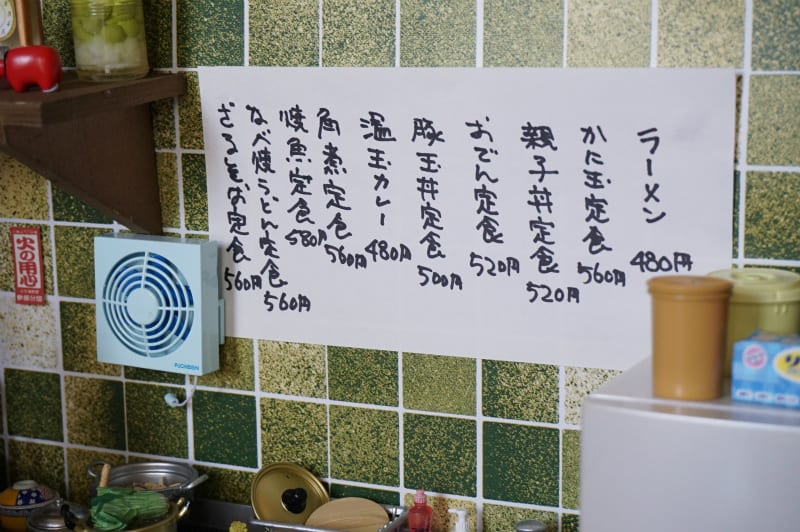 ラーメン 480円
かに玉定食 560円
親子丼定食 520円
おでん定食 520円
豚玉丼定食 500円
温玉カレー 480円
角煮定食 560円
焼魚定食 580円
なべ焼うどん定食 560円
ざるそば定食 560円
火の用心